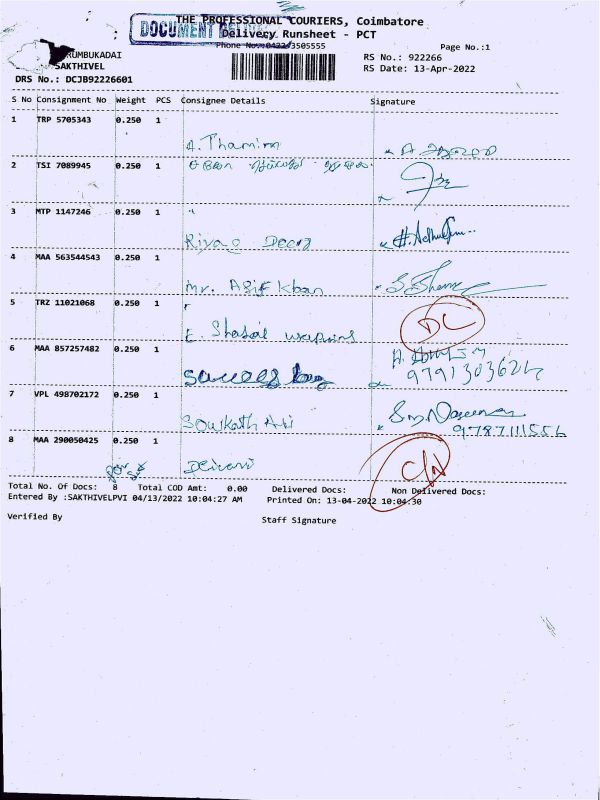 THE PROFESSIONAL COURIERS, Coimbatore
DOCUMENT
Delivery Runsheet - PCT
Phone No.:0422 3505555
Page No.:1
RUMBUKADAI
RS No.: 922266
SAKTHIVEL
RS Date: 13-Apr-2022
DRS No.: DCJB92226601
S No Consignment No Weight PCS Consignee Details Signature
1 TRP 5705343 0.250 1
A. Thamim
2 TSI 7089945 0.250 1
3 MTP 1147246 0.250 1 "
Riyas Deen
4 MAA 563544543 0.250 1
Mr. Asif Khan
5 TRZ 11021068 0.250 1
DC
6 MAA 857257482 0.250 1
7 VPL 498702172 0.250 1
Sowkath Ali
9787111556
8 MAA 290050425 0.250 1
C/N
Total No. Of Docs: 8 Total COD Amt: 0.00 Delivered Docs: Non Delivered Docs:
Entered By :SAKTHIVELPVI 04/13/2022 10:04:27 AM Printed On: 13-04-2022 10:04:30
Verified By Staff Signature